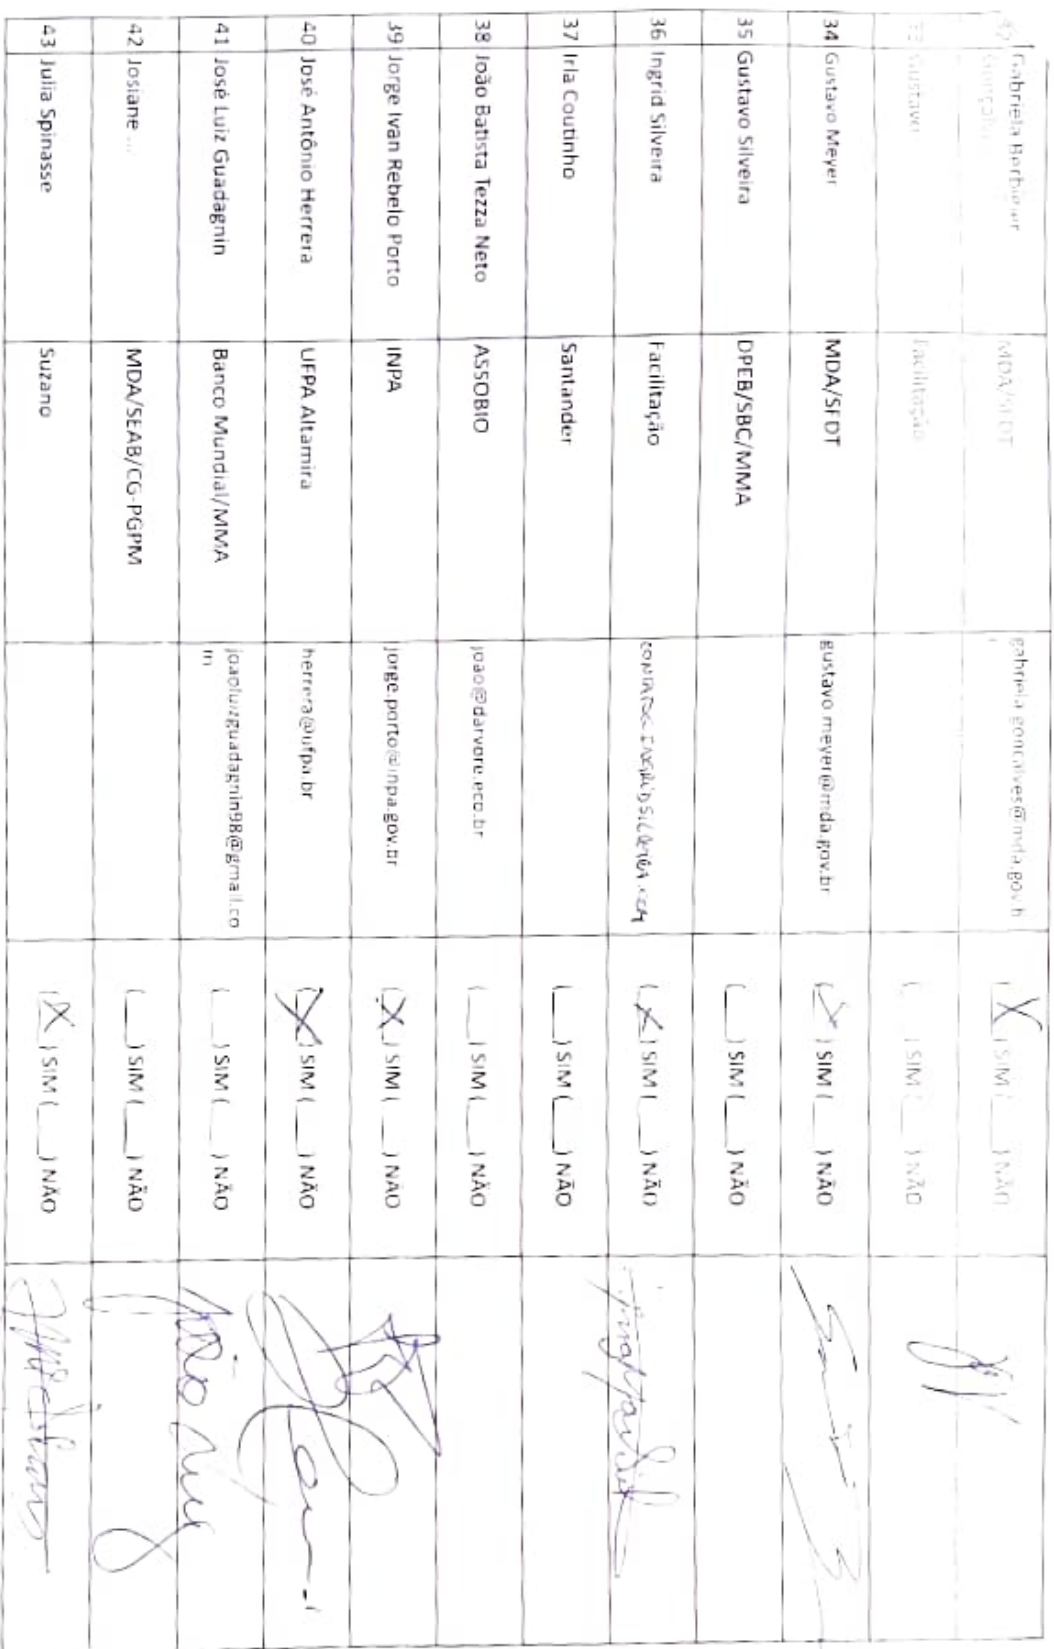 32 Gabriela Berbigier MDA/SFDT gabriela.goncalves@mda.gov.b (X) SIM (___) NÃO
Gonçalves
33 Gustavo Facilitação (___) SIM (___) NÃO
34 Gustavo Meyer MDA/SFDT gustavo.meyer@mda.gov.br (X) SIM (___) NÃO
35 Gustavo Silveira DPEB/SBC/MMA (___) SIM (___) NÃO
36 Ingrid Silveira Facilitação (X) SIM (___) NÃO
37 Irla Coutinho Santander (___) SIM (___) NÃO
38 João Batista Tezza Neto ASSOBIO joao@darvore.eco.br (___) SIM (___) NÃO
39 Jorge Ivan Rebelo Porto INPA jorge.porto@inpa.gov.br (X) SIM (___) NÃO
40 José Antônio Herrera UFPA Altamira herrera@ufpa.br (X) SIM (___) NÃO
41 José Luiz Guadagnin Banco Mundial/MMA joaoluizguadagnin98@gmail.co (___) SIM (___) NÃO João Luiz
m
42 Josiane ... MDA/SEAB/CG-PGPM (___) SIM (___) NÃO
43 Julia Spinasse Suzano (X) SIM (___) NÃO